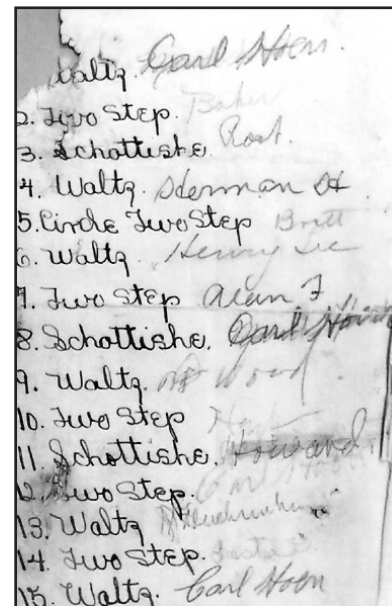 Waltz. Carl Hoen.
2. Two Step. Baker
3. Schottishe. Root
4. Waltz. Herman H
5. Circle Two Step Britt
6. Waltz. Henry Lee
7. Two Step Alvin F
8. Schottishe. Carl Hoen
9. Waltz. Wood
10. Two Step
11. Schottishe. Howard
12. Two Step. Carl
13. Waltz
14. Two Step.
15. Waltz. Carl Hoen